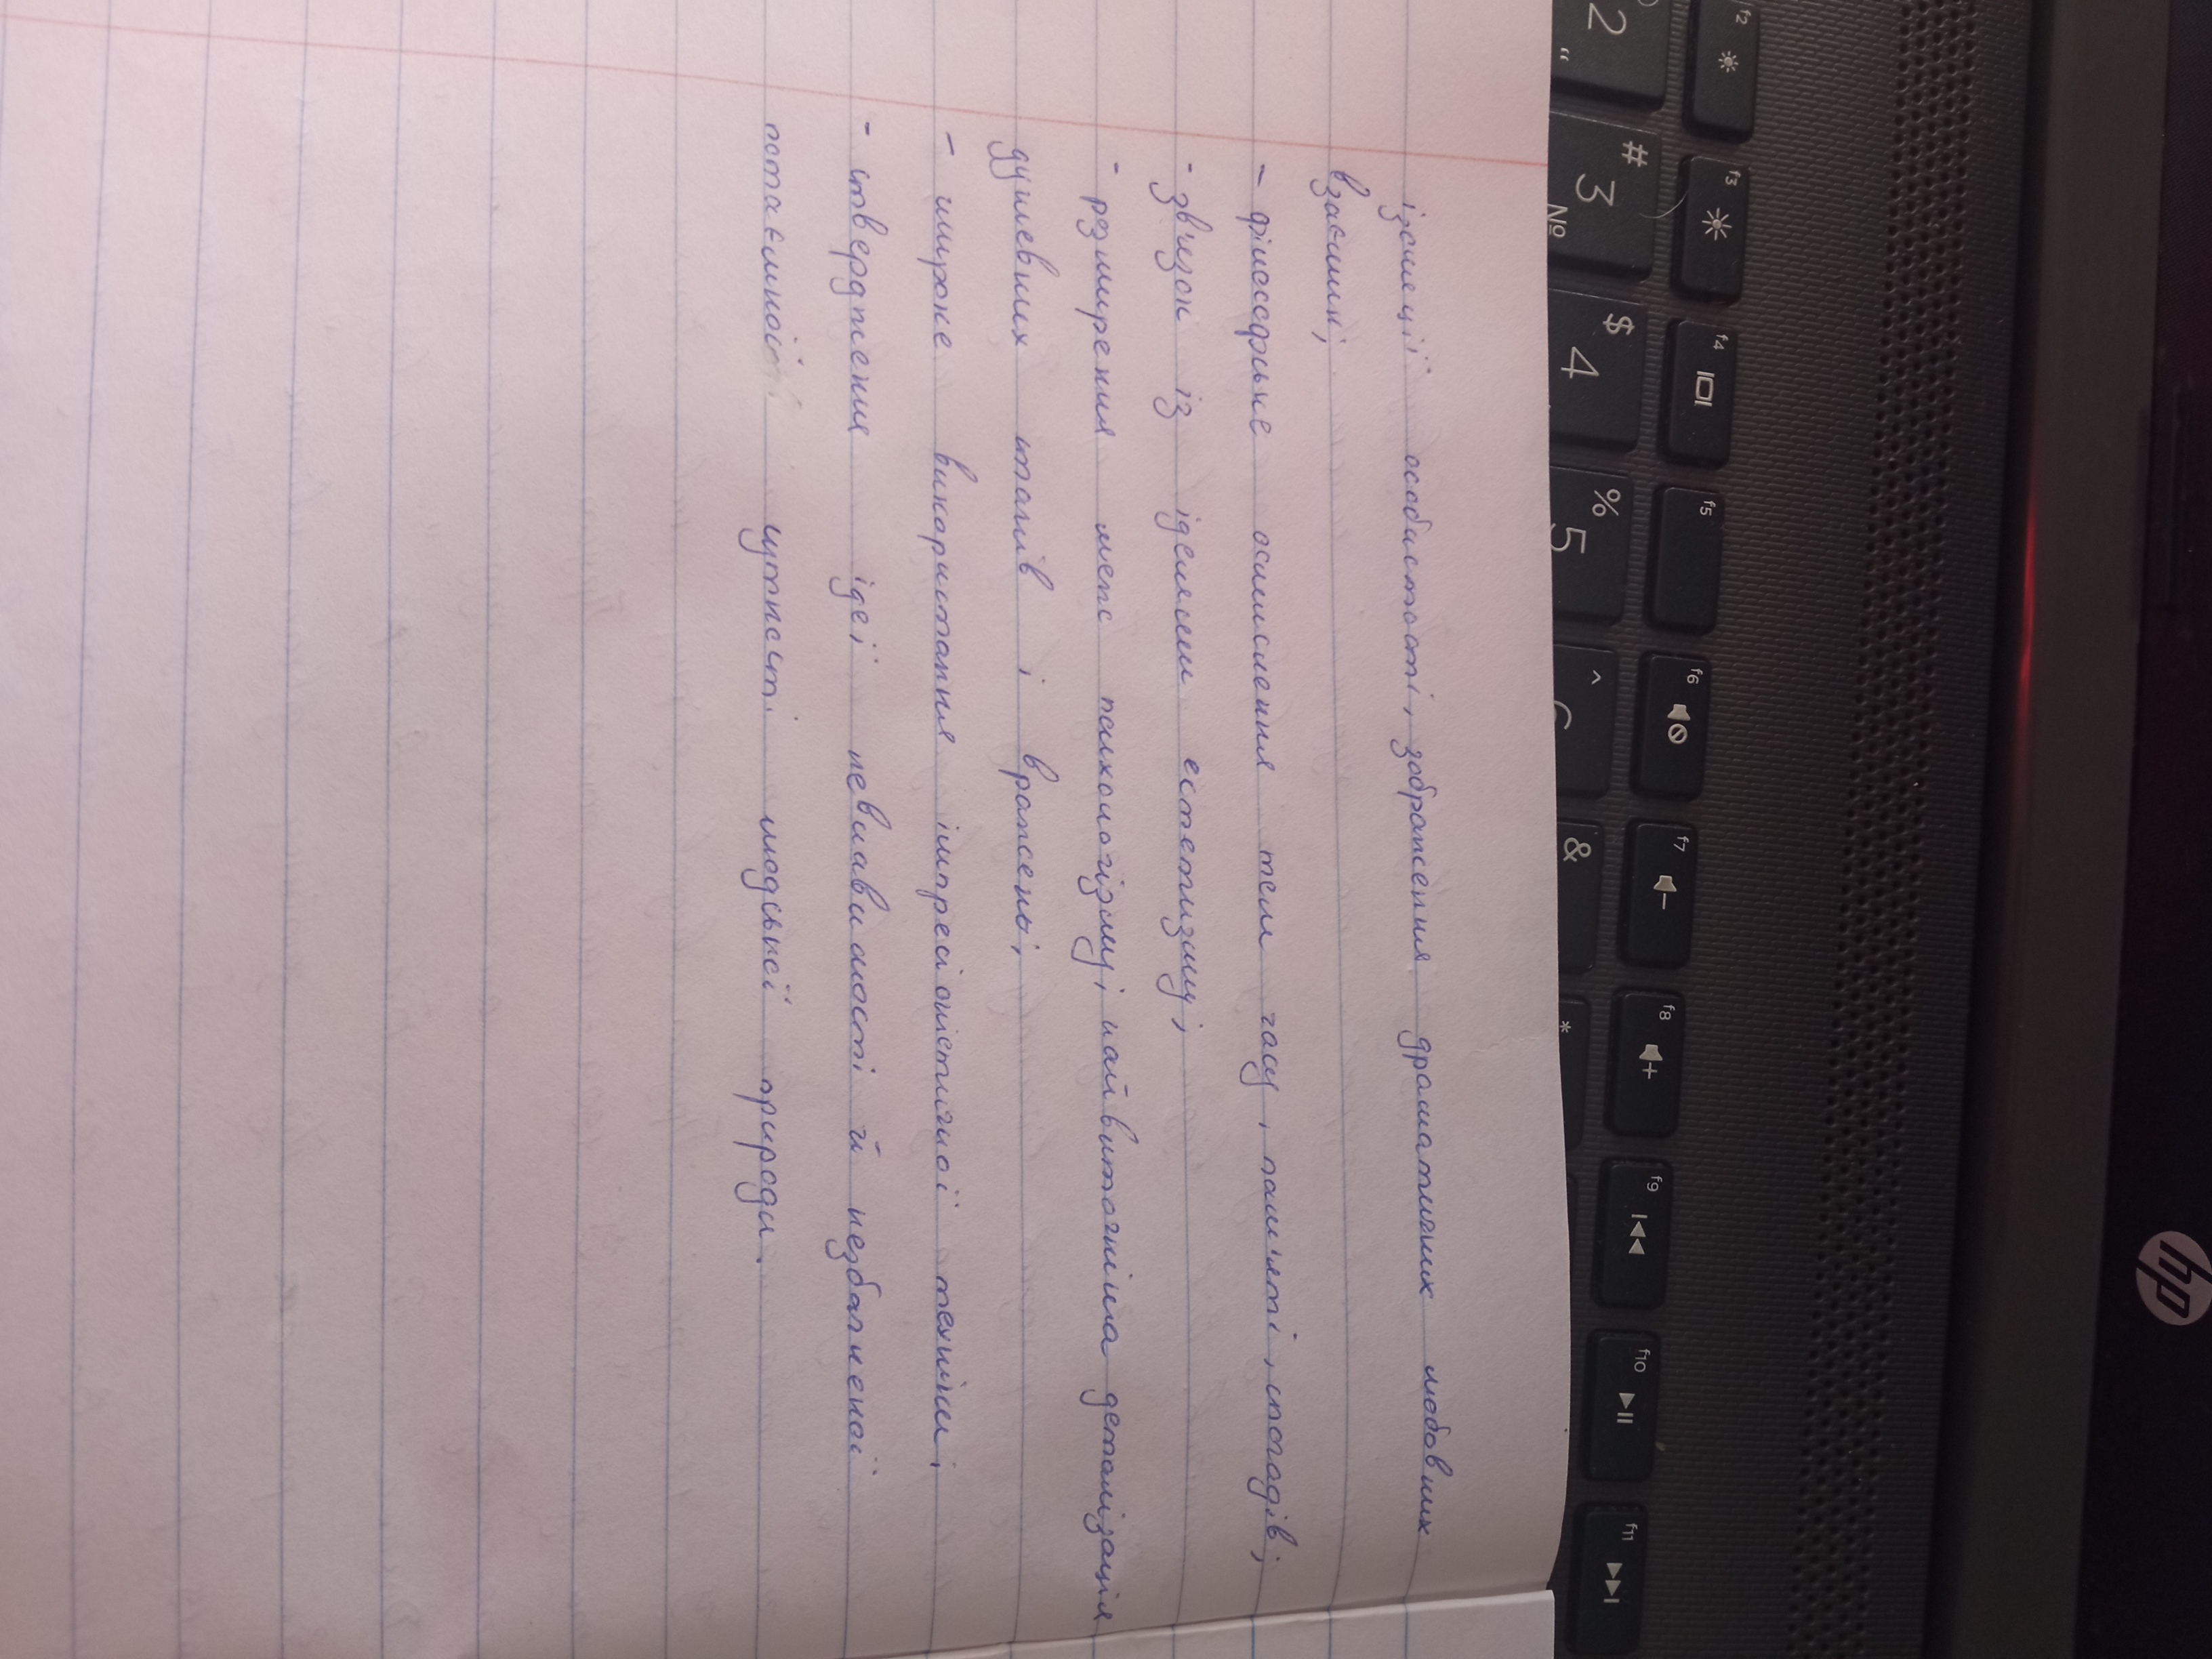 ізоляції особистості, зображення драматичних любовних
взаємин;
- філософське осмислення тем часу, пам'яті, спогадів;
- зв'язок із ідеями естетизму;
- розширення меж психологізму, найвитончініша деталізація
душевних станів і вражень;
- широке використання імпресіоністичної техніки;
- ствердження ідеї невловимості й незбагненої
потаємної сутності людської природи.
f2 f3 f4 f5 f6 f7 f8 f9 f10 f11
2 " # 3 № $ 4 % 5 ^ & *
hp